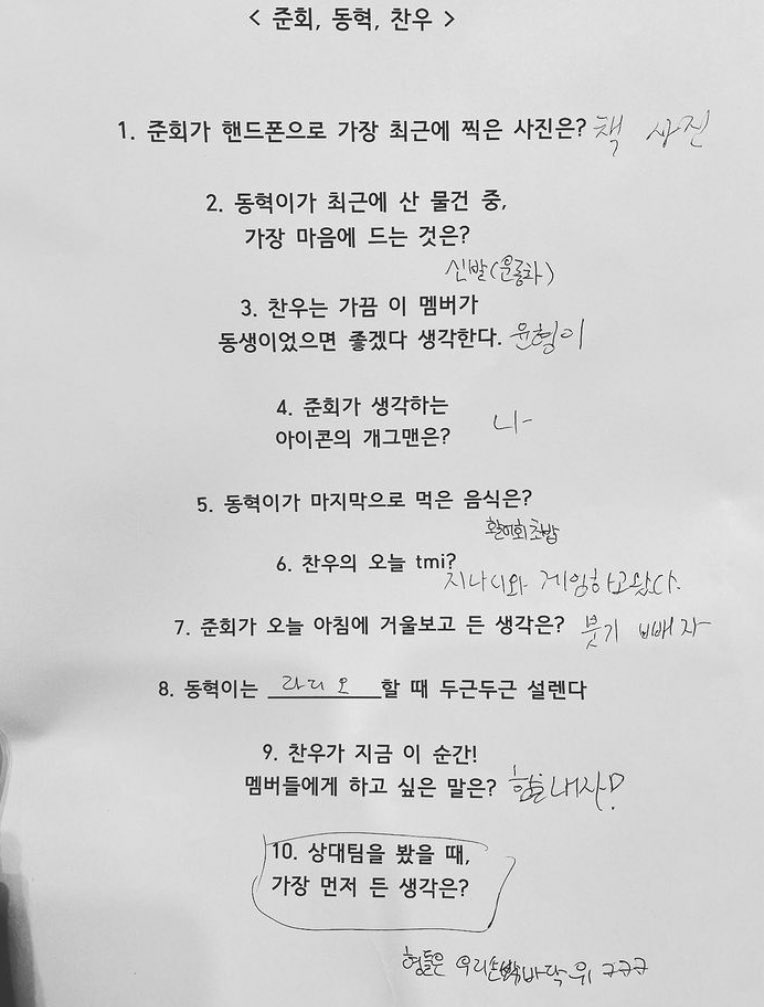 < 준회, 동혁, 찬우 >
1. 준회가 핸드폰으로 가장 최근에 찍은 사진은? 책 사진
2. 동혁이가 최근에 산 물건 중,
가장 마음에 드는 것은?
신발(운동화)
3. 찬우는 가끔 이 멤버가
동생이었으면 좋겠다 생각한다. 윤형이
4. 준회가 생각하는
아이콘의 개그맨은? 나
5. 동혁이가 마지막으로 먹은 음식은?
활어회초밥
6. 찬우의 오늘 tmi?
지나니와 게임하고왔다.
7. 준회가 오늘 아침에 거울보고 든 생각은? 붓기 빼자
8. 동혁이는 라디오 할 때 두근두근 설렌다
9. 찬우가 지금 이 순간!
멤버들에게 하고 싶은 말은? 힘을내자!
10. 상대팀을 봤을 때,
가장 먼저 든 생각은?
형들은 우리손바닥 위 ㅋㅋㅋ